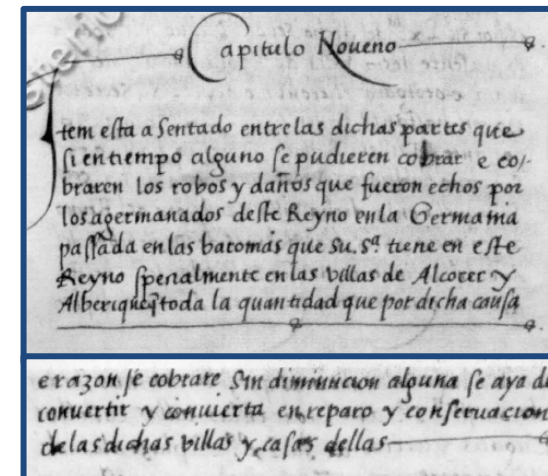 Capitulo Noueno
Item esta asentado entre las dichas partes que
si en tiempo alguno se pudieren cobrar e co/-
braren los robos y daños que fueron echos por
los agermanados deste Reyno en la Germania
passada en las baronias que su sª tiene en este
Reyno specialmente en las villas de Alcocer y
Alberique q̃ toda la quantidad que por dicha causa
e razon se cobrare sin diminucion alguna se aya de
conuertir y conuierta en reparo y conseruacion
de las dichas villas y casas dellas